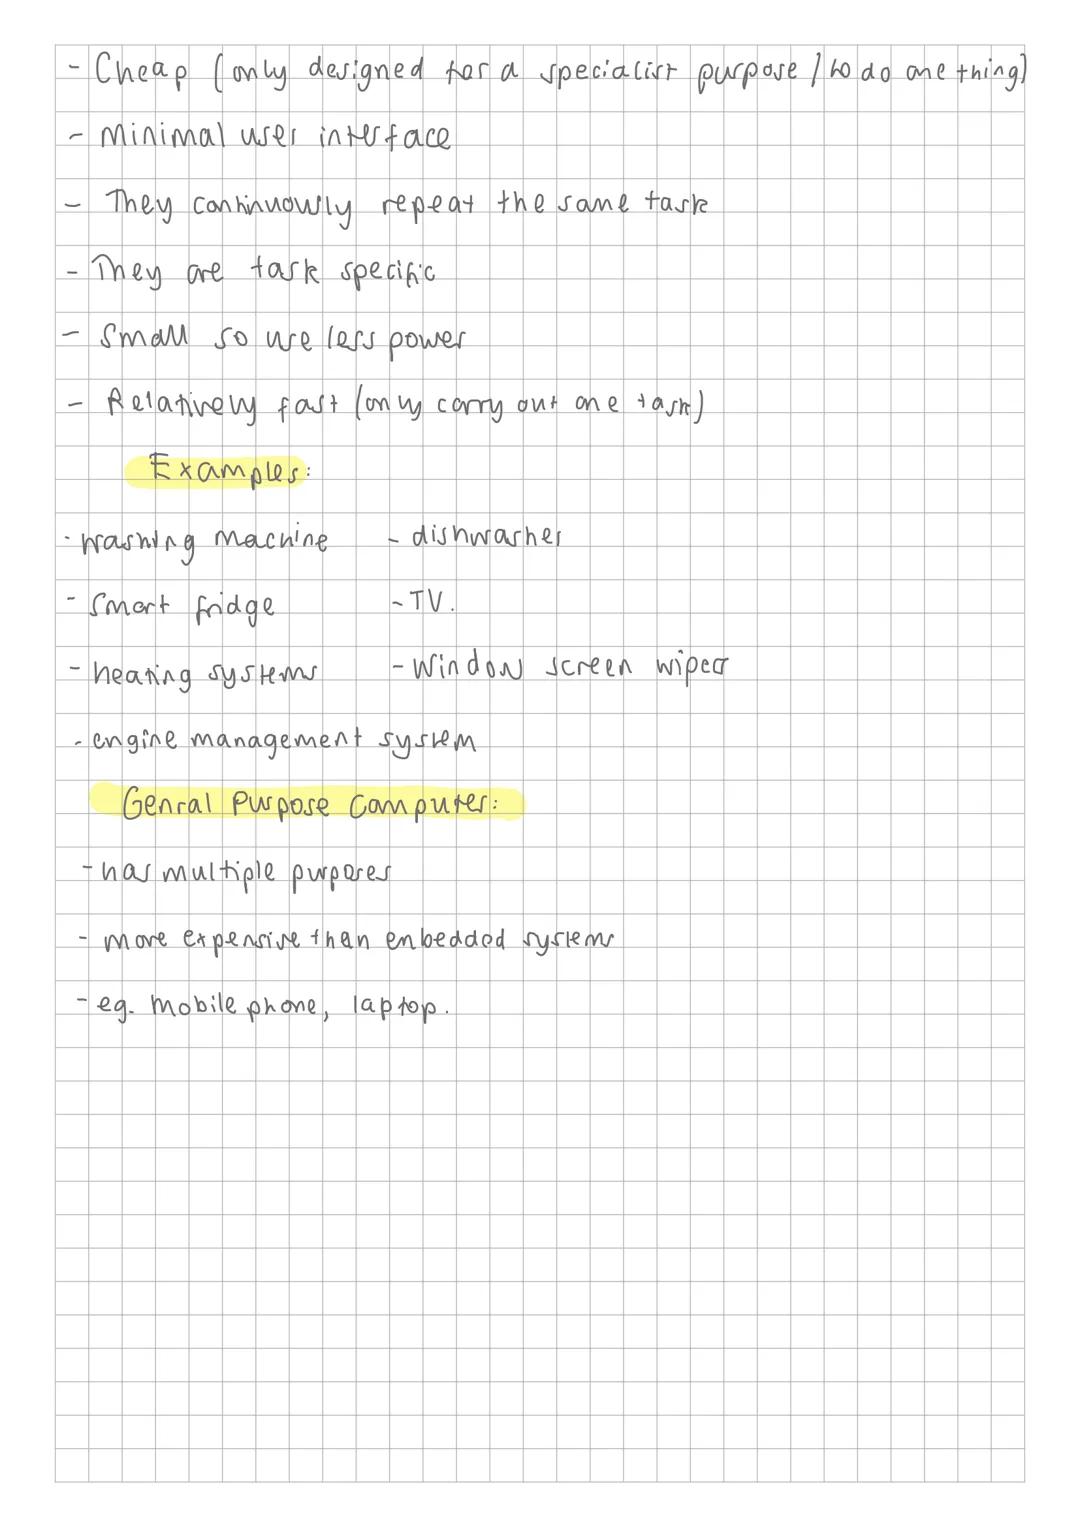 - Cheap (only designed for a specialist purpose / to do one thing)
- Minimal user interface
- They continuously repeat the same task
- They are task specific
- Small so use less power
- Relatively fast (only carry out one task)
Examples:
- washing machine - dishwasher
- Smart fridge - TV.
- heating systems - Window screen wiper
- engine management system
Genral Purpose Computer:
- has multiple purposes
- more expensive than enbedded systems
- eg. Mobile phone, laptop.